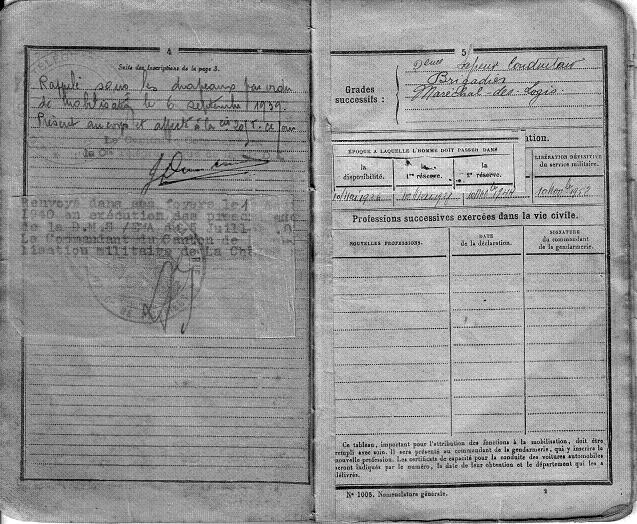 4
Suite des inscriptions de la page 3.
Rappelé sous les drapeaux par ordre
de mobilisation le 6 septembre 1939.
Présent au corps et affecté à la Cie ce jour
Renvoyé dans ses foyers le
1940 en exécution des
de la D.M.S /EMA du Juill
Le Commandant du Canton de
lisation militaire de La Châ
5
Grades
successifs :
2ème Sapeur Conducteur
Brigadier
Maréchal-des-Logis
ation.
ÉPOQUE A LAQUELLE L'HOMME DOIT PASSER DANS
la
disponibilité.
la
1re réserve.
la
2e réserve.
LIBÉRATION DÉFINITIVE
du service militaire.
10 Nov bre 1952
Professions successives exercées dans la vie civile.
NOUVELLES PROFESSIONS.
DATE
de la déclaration.
SIGNATURE
du commandant
de la gendarmerie.
Ce tableau, important pour l'attribution des fonctions à la mobilisation, doit être
rempli avec soin. Il sera présenté au commandant de la gendarmerie, qui y inscrira la
nouvelle profession. Les certificats de capacité pour la conduite des voitures automobiles
seront indiqués par le numéro, la date de leur obtention et le département qui les a
délivrés.
N° 1005. Nomenclature générale.
2